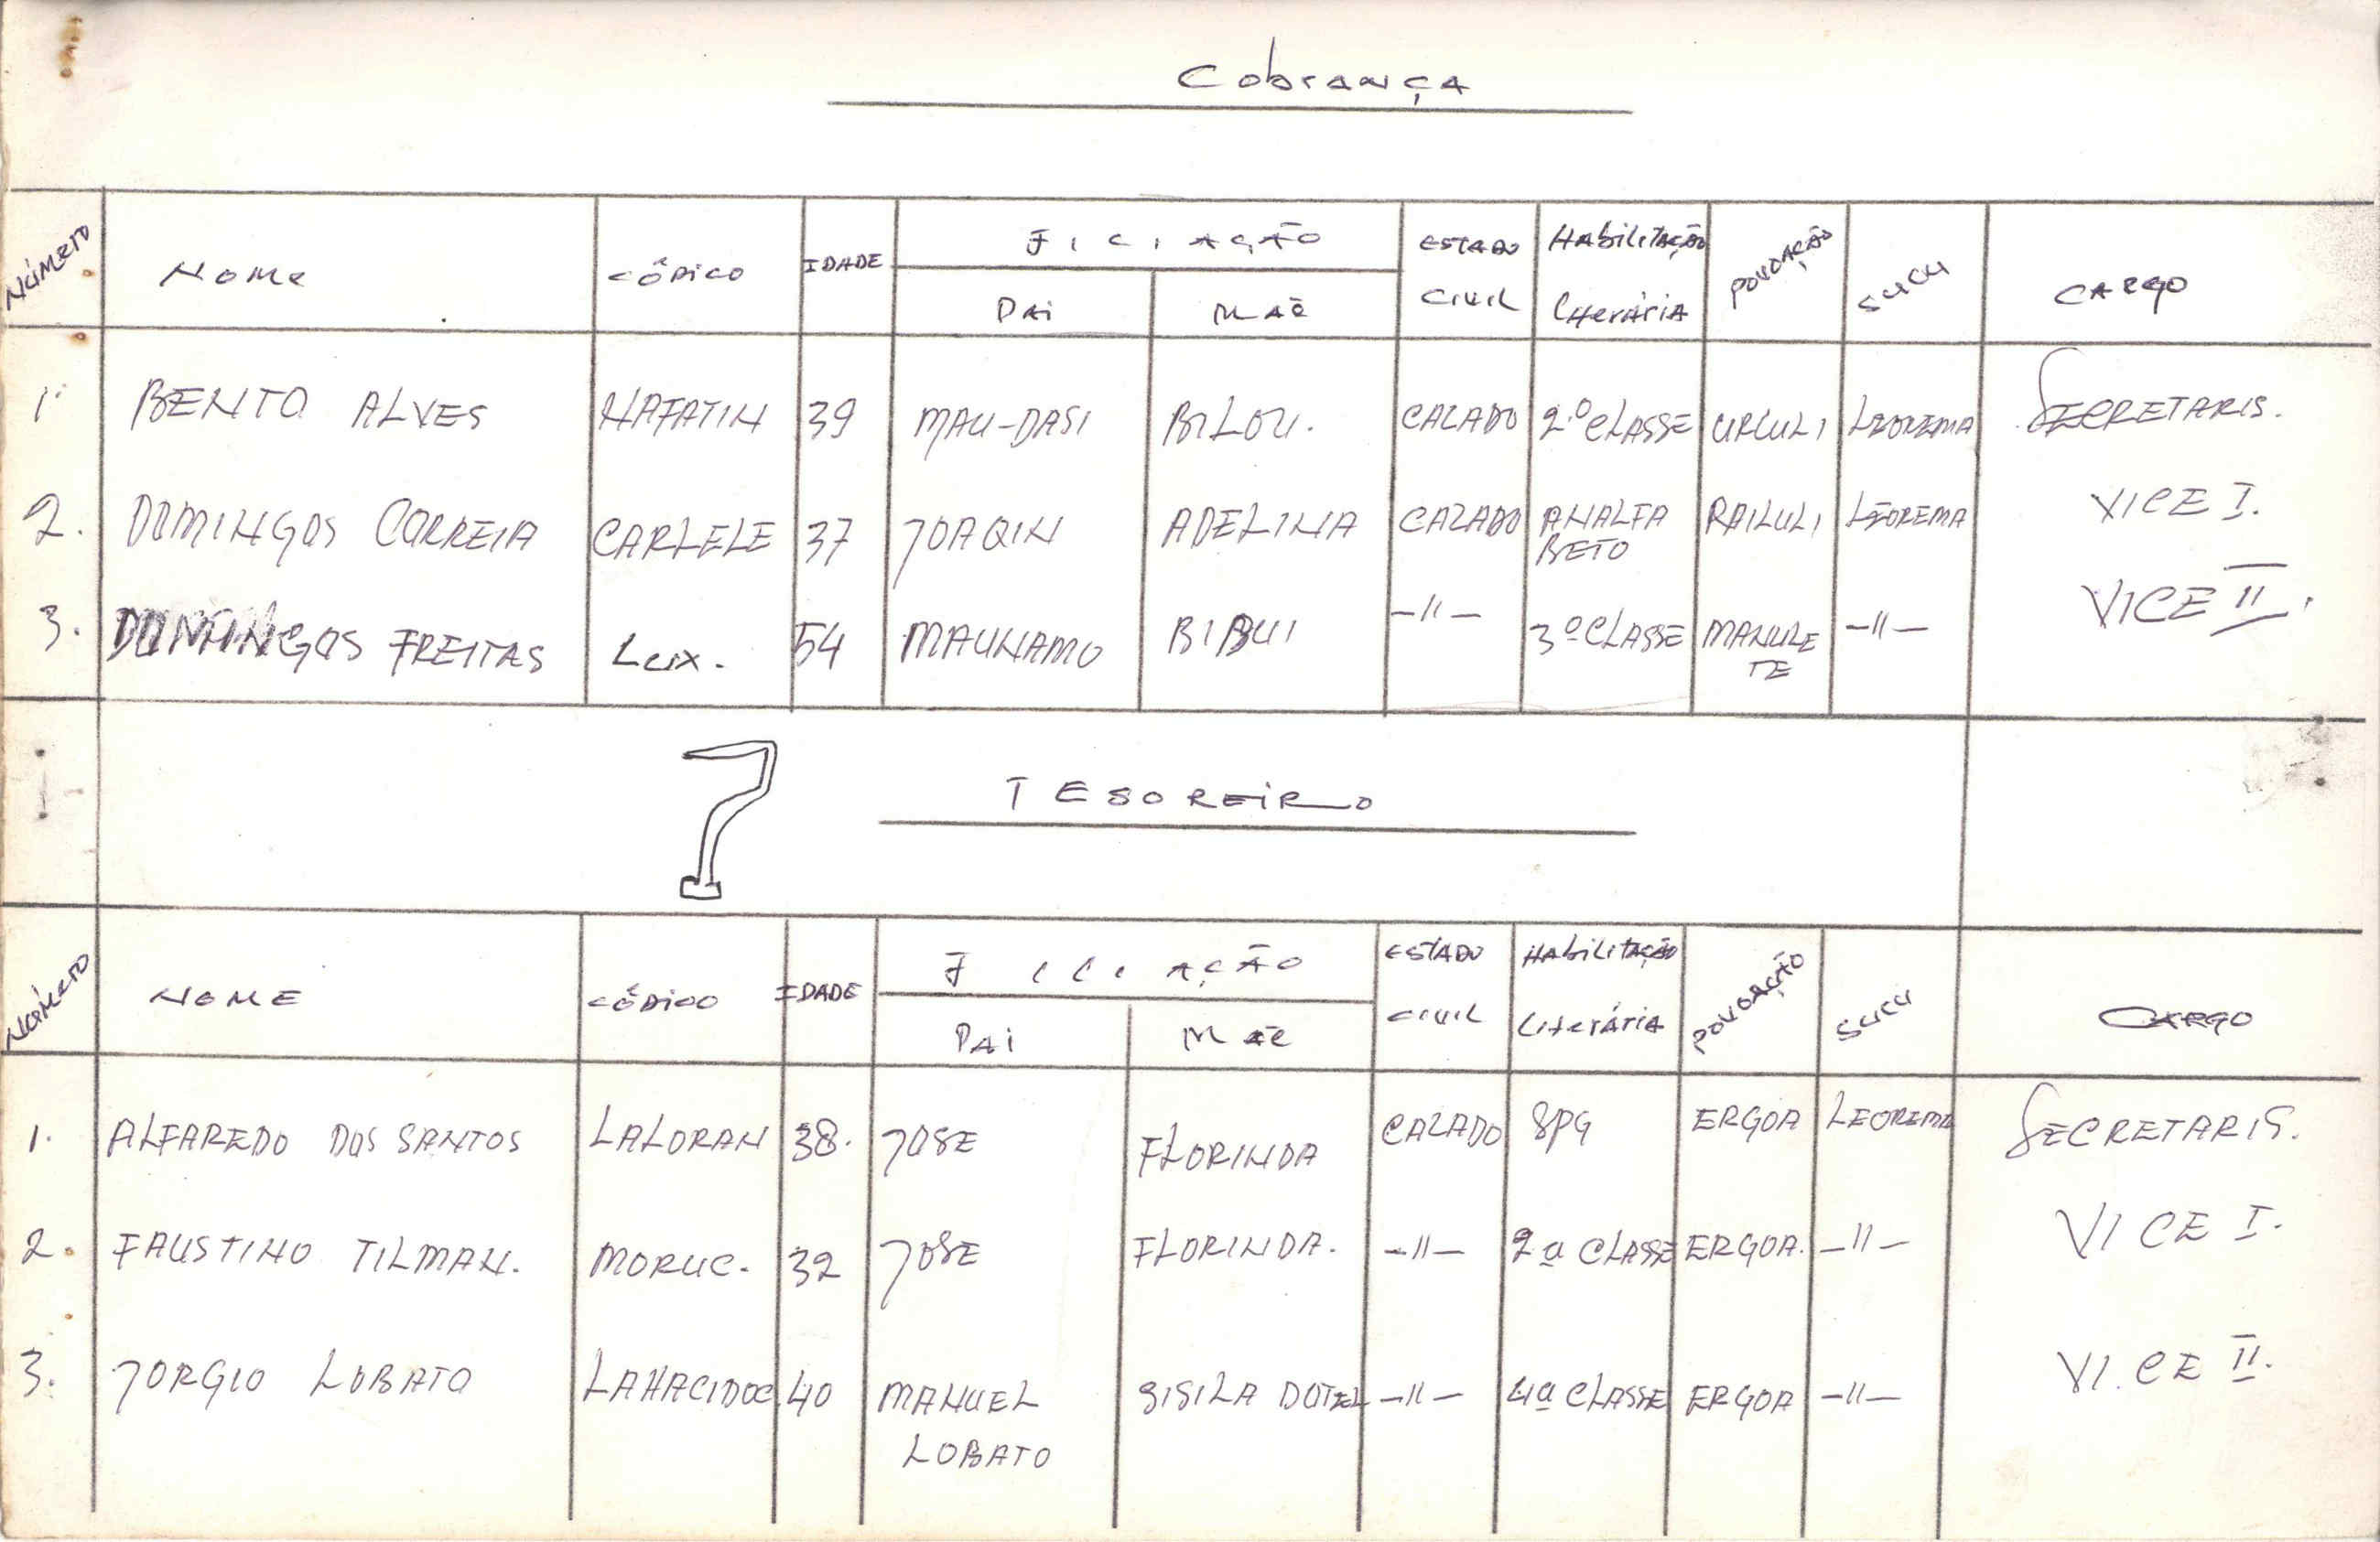 Cobrança
Número Nome Códico IDADE Filiação ESTADO CIVIL Habilitação Literária Povoação Sucu CARGO
Pai Mãe
1. BENTO ALVES HAFATIN 39 MAU-DASI BILOU. CAZADO 2.º CLASSE URLULI LEOREMA SECRETARIS.
2. DOMINGOS CORREIA CARLELE 37 JOAQIN ADELINA CAZADO ANALFA RAILULI LEOREMA VICE I.
BETO
3. DOMINGOS FREITAS Lux. 54 MAUNAMO BIBUI -"- 3º CLASSE MANULE -"- VICE II.
TE
? TESOREIRO
Número NOME CÓDICO IDADE Filiação ESTADO CIVIL Habilitação Literária Povoação Sucu CARGO
PAi Mãe
1. ALFAREDO DOS SANTOS LALORAN 38. JOSE FLORINDA CAZADO SPG ERGOA LEOREMA SECRETARIS.
2. FAUSTINO TILMAN. MORUC. 32 JOSE FLORINDA. -"- 2ª CLASSE ERGOA. -"- VICE I.
3. JORGIO LOBATO LAHACIDOC 40 MANUEL SISILA DOTEL -"- 4ª CLASSE ERGOA -"- VI.CE II.
LOBATO